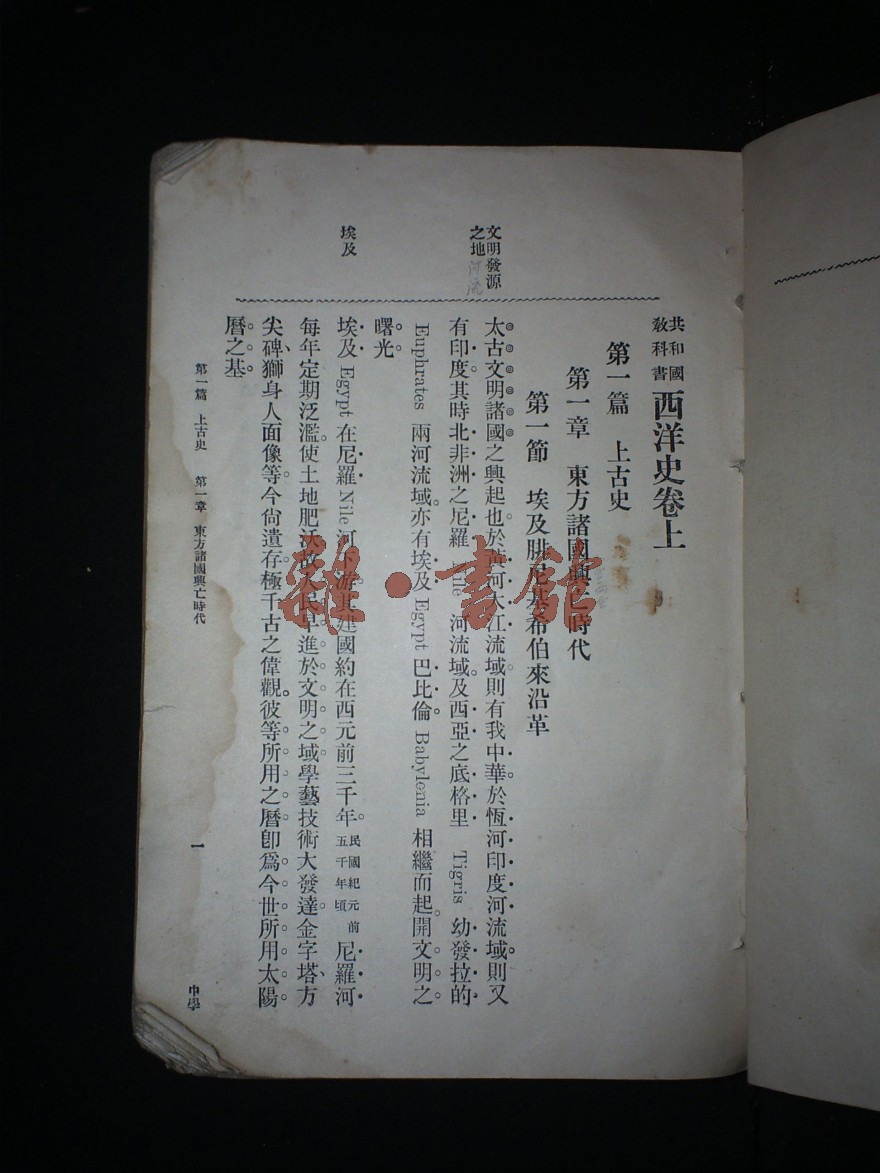 共和國教科書 西洋史卷上
第一篇 上古史
第一章 東方諸國興亡時代
第一節 埃及腓尼基希伯來沿革
文明發源之地
河流
太古文明諸國之興起也。於黃河大江流域則有我中華。於恆河印度河流域則又
有印度。其時北非洲之尼羅 Nile 河流域。及西亞之底格里 Tigris 幼發拉的
Euphrates 兩河流域。亦有埃及 Egypt 巴比倫 Babylenia 相繼而起。開文明之
曙光。
埃及
埃及 Egypt 在尼羅 Nile 河下游。其建國約在西元前三千年。民國紀元前五千年頃 尼羅河
每年定期泛濫。使土地肥沃。故人民早進於文明之域。學藝技術大發達。金字塔、方
尖碑、獅身人面像等。今尙遺存。極千古之偉觀。彼等所用之曆。卽爲今世所用太陽
曆之基。
第一篇 上古史 第一章 東方諸國興亡時代
一
中學
雜·書館